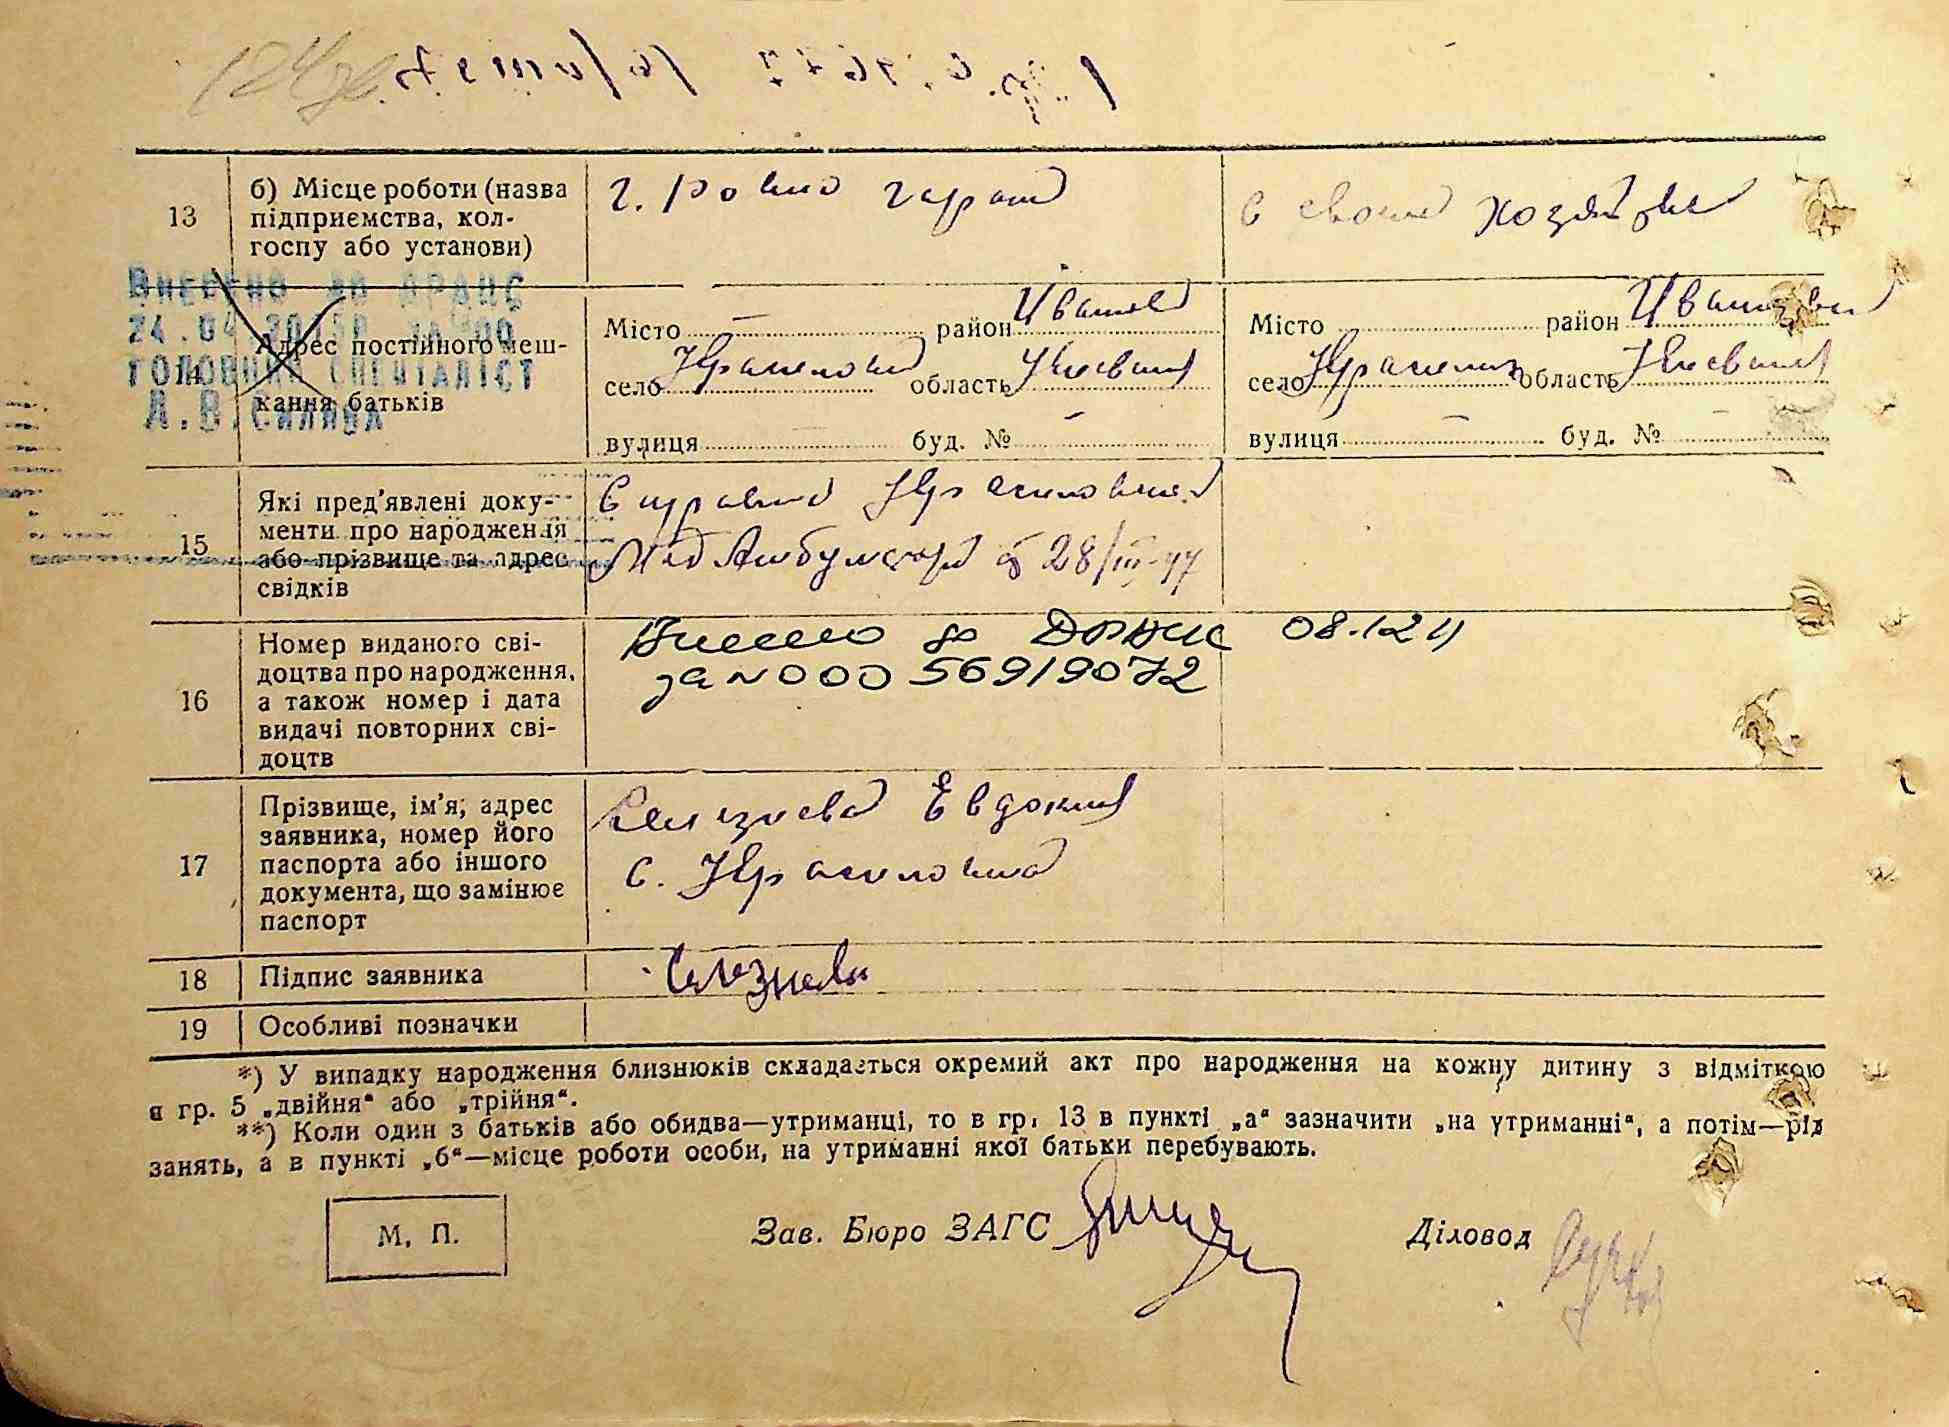 13
б) Місце роботи (назва
підприємства, кол-
госпу або установи)
г. Ровно
в своем хозяйстве
Внесено до ДРАЦС
24.04.
ГОЛОВНИЙ СПЕЦІАЛІСТ
14
Адрес постійного меш-
кання батьків
Місто — район Иванков
село область Киевская
вулиця — буд. № —
Місто район
село область Киевская
вулиця — буд. № —
15
Які пред'явлені доку-
менти про народження
або прізвище та адрес
свідків
Справка
Мед Амбулатори 28/III-47
16
Номер виданого сві-
доцтва про народження,
а також номер і дата
видачі повторних сві-
доцтв
Внесено до 08.12 11
за N 000 569/9072
17
Прізвище, ім'я, адрес
заявника, номер його
паспорта або іншого
документа, що замінює
паспорт
Селезнева Евдокия
с.
18
Підпис заявника
Селезнева
19
Особливі позначки
*) У випадку народження близнюків складається окремий акт про народження на кожну дитину з відміткою
в гр. 5 „двійня“ або „трійня“.
**) Коли один з батьків або обидва—утриманці, то в гр. 13 в пункті „а“ зазначити „на утриманні“, а потім—рід
занять, а в пункті „б“—місце роботи особи, на утриманні якої батьки перебувають.
М. П.
Зав. Бюро ЗАГС
Діловод